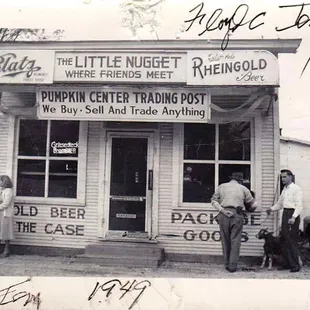 Floyd C
Blatz
THE LITTLE NUGGET
WHERE FRIENDS MEET
RHEINGOLD
Beer
PUMPKIN CENTER TRADING POST
We Buy - Sell And Trade Anything
Griesedieck
OLD BEER
THE CASE
PACK
GOODS
1949